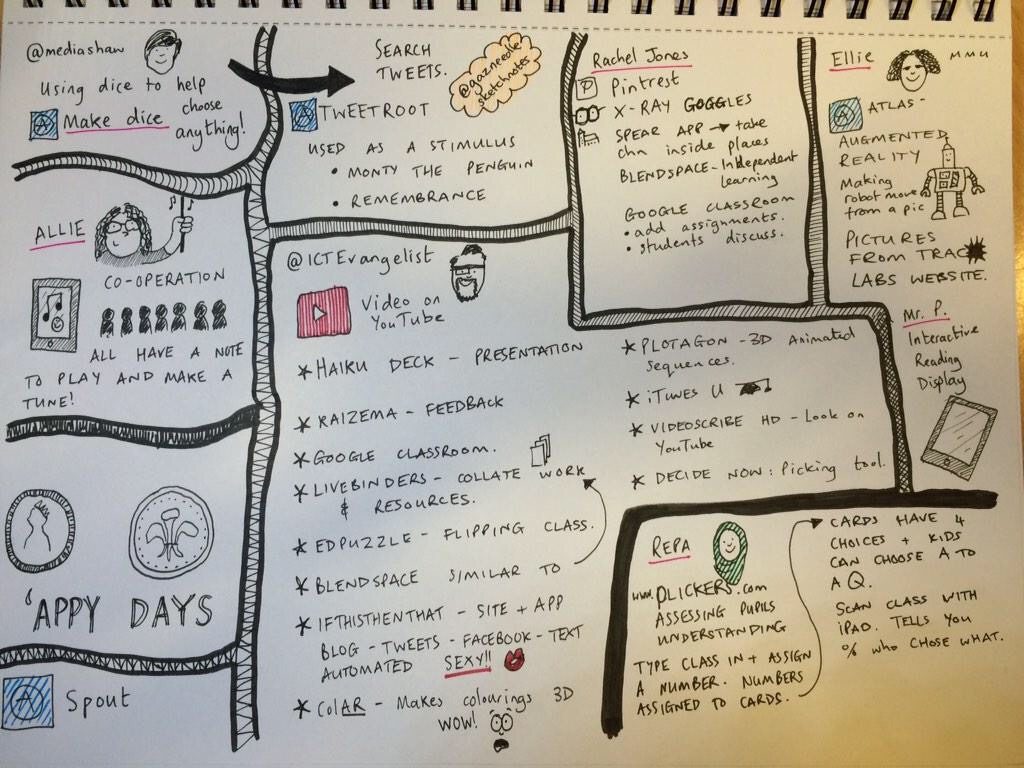 @mediashaw
Using dice to help
choose
Make dice
anything!
SEARCH
TWEETS.
@gazneedle
sketchnotes
TWEETROOT
USED AS A STIMULUS
• MONTY THE PENGUIN
• REMEMBRANCE
Rachel Jones
Pintrest
X-RAY GOGGLES
SPEAR APP → take
chn inside places
BLENDSPACE - Independent
learning
GOOGLE CLASSROOM
• add assignments.
• students discuss.
Ellie
MMU
ATLAS -
AUGMENTED
REALITY
Making
robot move
from a pic
PICTURES
FROM TRAC
LABS WEBSITE.
Mr. P.
Interactive
Reading
Display
ALLIE
CO-OPERATION
ALL HAVE A NOTE
TO PLAY AND MAKE A
TUNE!
'APPY DAYS
Spout
@ICTEvangelist
Video on
YouTube
* HAIKU DECK - PRESENTATION
* KAIZEMA - FEEDBACK
* GOOGLE CLASSROOM.
* LIVEBINDERS - COLLATE WORK
& RESOURCES.
* EDPUZZLE - FLIPPING CLASS.
* BLENDSPACE SIMILAR TO
* IFTHISTHENTHAT - SITE + APP
BLOG - TWEETS - FACEBOOK - TEXT
AUTOMATED SEXY!!
* ColAR - Makes colourings 3D
WOW!
* PLOTAGON - 3D Animated
Sequences.
* iTunes U
* VIDEOSCRIBE HD - Look on
YouTube
* DECIDE NOW: Picking tool.
REPA
www.PLICKERS.com
ASSESSING PUPILS
UNDERSTANDING
TYPE CLASS IN + ASSIGN
A NUMBER. NUMBERS
ASSIGNED TO CARDS.
CARDS HAVE 4
CHOICES + KIDS
CAN CHOOSE A TO
A Q.
SCAN CLASS WITH
iPAD. TELLS YOU
% WHO CHOSE WHAT.